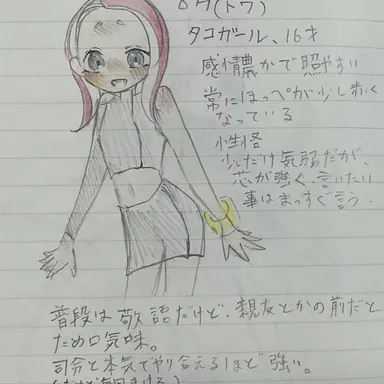 (トワ)
タコガール、16才
感情豊かで照やすい
常にほっぺが少し赤く
なっている
性格
少しだけ気弱だが、
芯が強く、言いたい
事はまっすぐ言う。
普段は敬語だけど、親友とかの前だと
ため口気味。
司分と本気でやり合えるほど強い。